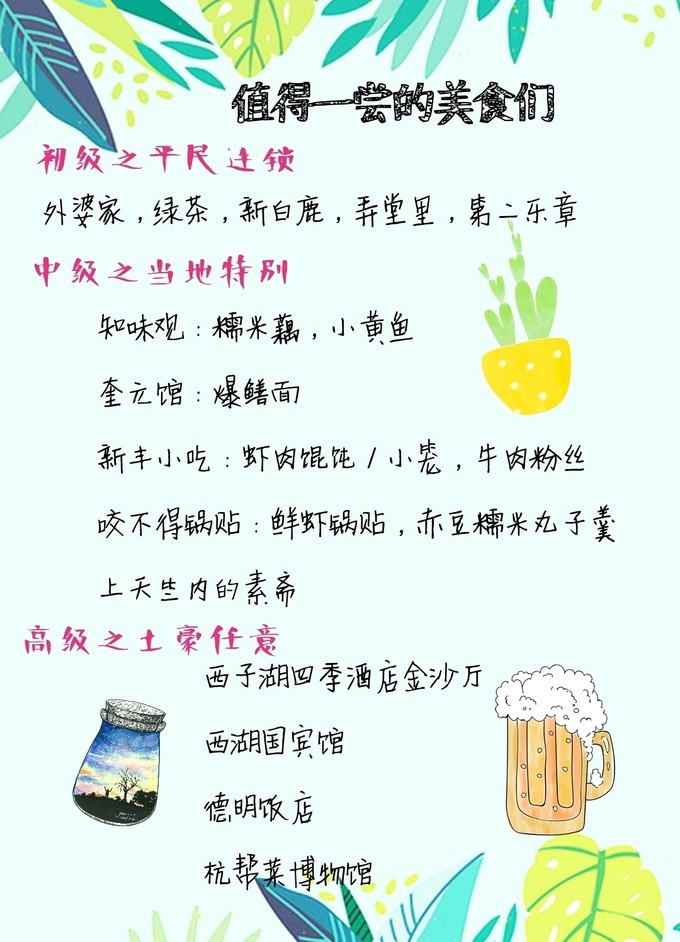 值得一尝的美食们
初级之平民连锁
外婆家,绿茶,新白鹿,弄堂里,第二乐章
中级之当地特别
知味观:糯米藕,小黄鱼
奎元馆:爆鳝面
新丰小吃:虾肉馄饨/小笼,牛肉粉丝
咬不得锅贴:鲜虾锅贴,赤豆糯米丸子羹
上天竺内的素斋
高级之土豪任意
西子湖四季酒店金沙厅
西湖国宾馆
德明饭店
杭帮菜博物馆